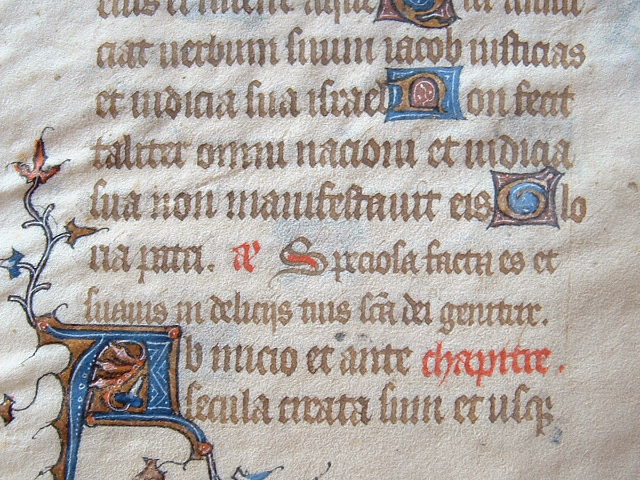 eius et flueĩt aque Qui annũ
ciat uerbum suum iacob iusticias
et iudicia sua israel Non fecit
taliter omni nacioni et iudicia
sua non manifestauit eis Glo
ria patri. añ Speciosa facta es et
suauis in delicijs tuis sc̃a dei genitrix.
Ab inicio et ante chapitre.
secula creata sum et usqꝫ